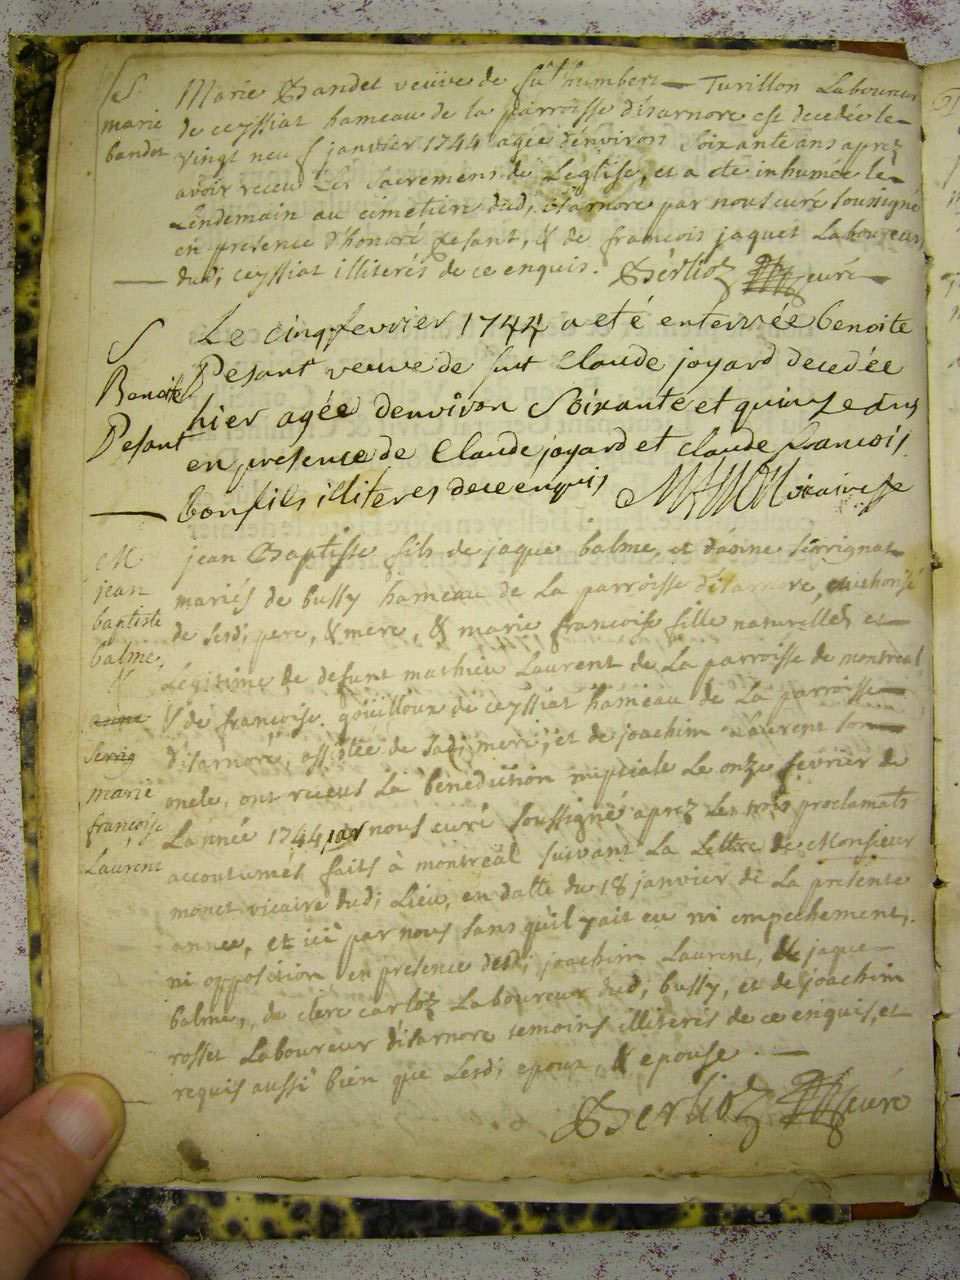 S
marie
bandet
Marie Bandet veuve de fut humbert Turillon Laboureur
de ceyssiat hameau de la parroisse disarnore est decedée le
vingt neuf janvier 1744 agée d'environ soixante ans aprez
avoir receu les sacremens de Leglise, et a été inhumée le
Lendemain au cimetiere dud; isarnore par nous curé soussigné
en presence d'honoré pesant, & de francois jaquet Laboureurs
dud; ceyssiat illiterés de ce enquis. Berlioz curé
S
Benoite
Pesant
Le cinq fevrier 1744 a eté enterrée benoite
Pesant veuve de fut Claude joyard decedée
hier agée denviron Soixante et quinze ans
en presence de Claude joyard et claude francois
bonfils illiteres de ce enquis vicaire
M
jean
baptiste
balme,
&
serrig
marie
françoise
Laurent
jean Baptiste fils de jaque balme, et danne serrignat
mariés de bussy hameau de La parroisse disarnore, authorisé
de sesd; pere, & mere, & marie françoise fille naturelle et
Légitime de defunt mathieu Laurent de La parroisse de montreal
& de françoise goüilloux de ceyssiat hameau de La parroisse
disarnore, assistée de sad; mere, et de joachim Laurent son
oncle, ont receus La bénédiction nuptiale Le onze fevrier de
Lannée 1744 par nous curé soussigné aprez les trois proclamats
accoutumés faits à montreal suivant La Lettre de Monsieur
monet vicaire dud; Lieu, en datte du 18 janvier de La presente
annee, et ici par nous sans qu'il y ait eu ni empechement,
ni opposition en presence desd; joachim Laurent, & jaque
balme, de clere carloz Laboureur dud; bussy, et de joachim
rosset Laboureur disarnore temoins illiterés de ce enquis, et
requis aussi bien que Lesd; epoux, & epouse.
Berlioz curé